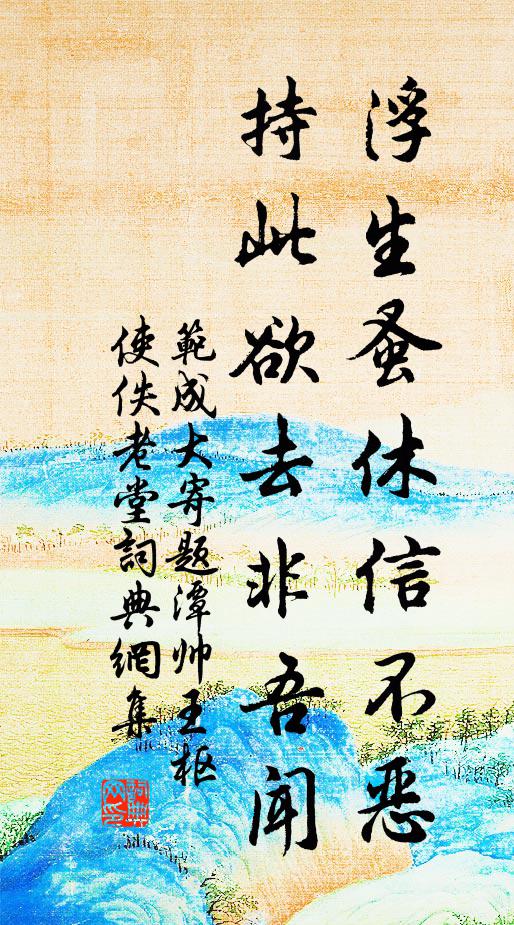 浮生蚤休信不恶
持此欲去非吾闻
範成大寄题潭帅王枢
使佚老堂詞典網集